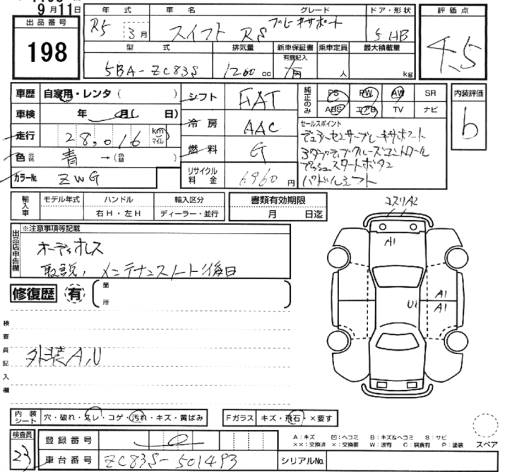 9月11日
出品番号
198
年式 車名 グレード ドア・形状
R5 3月 スイフト RS ブレーキサポート 5 HB
型式 排気量 新車保証書 乗車定員 最大積載量
有間記入
5BA-ZC83S 1200cc 有 人 kg
評価点
4.5
車歴 自家用・レンタ( )
車検 年 月( )
走行 28,016 km マイル
色 青 →( )
カラー№ ZWG
シフト FAT
冷房 AAC
燃料 G
リサイクル料金 6,960 円
純正のみ PS PW AW SR
ABS エアB TV ナビ
セールスポイント
デュアルセンサーブレーキサポート
アダプティブクルーズコントロール
プッシュスタートボタン
パドルシフト
内装評価
b
輸入車 モデル年式 ハンドル 輸入区分
右H・左H ディーラー・並行
書類有効期限
月 日迄
出品店申告欄
※注意事項等記載
オーディオレス
取説、メンテナンスノート後日
修復歴 有 箇所
検査員記入欄
外装A,U
コスリA2
A1
U1
A1
A1
内装シート 穴・破れ・気レ・コゲ・汚れ・キズ・黄ばみ
Fガラス キズ・飛石・×要す
スペア
検査員 23
登録番号
車台番号 ZC83S-501493
シリアル№